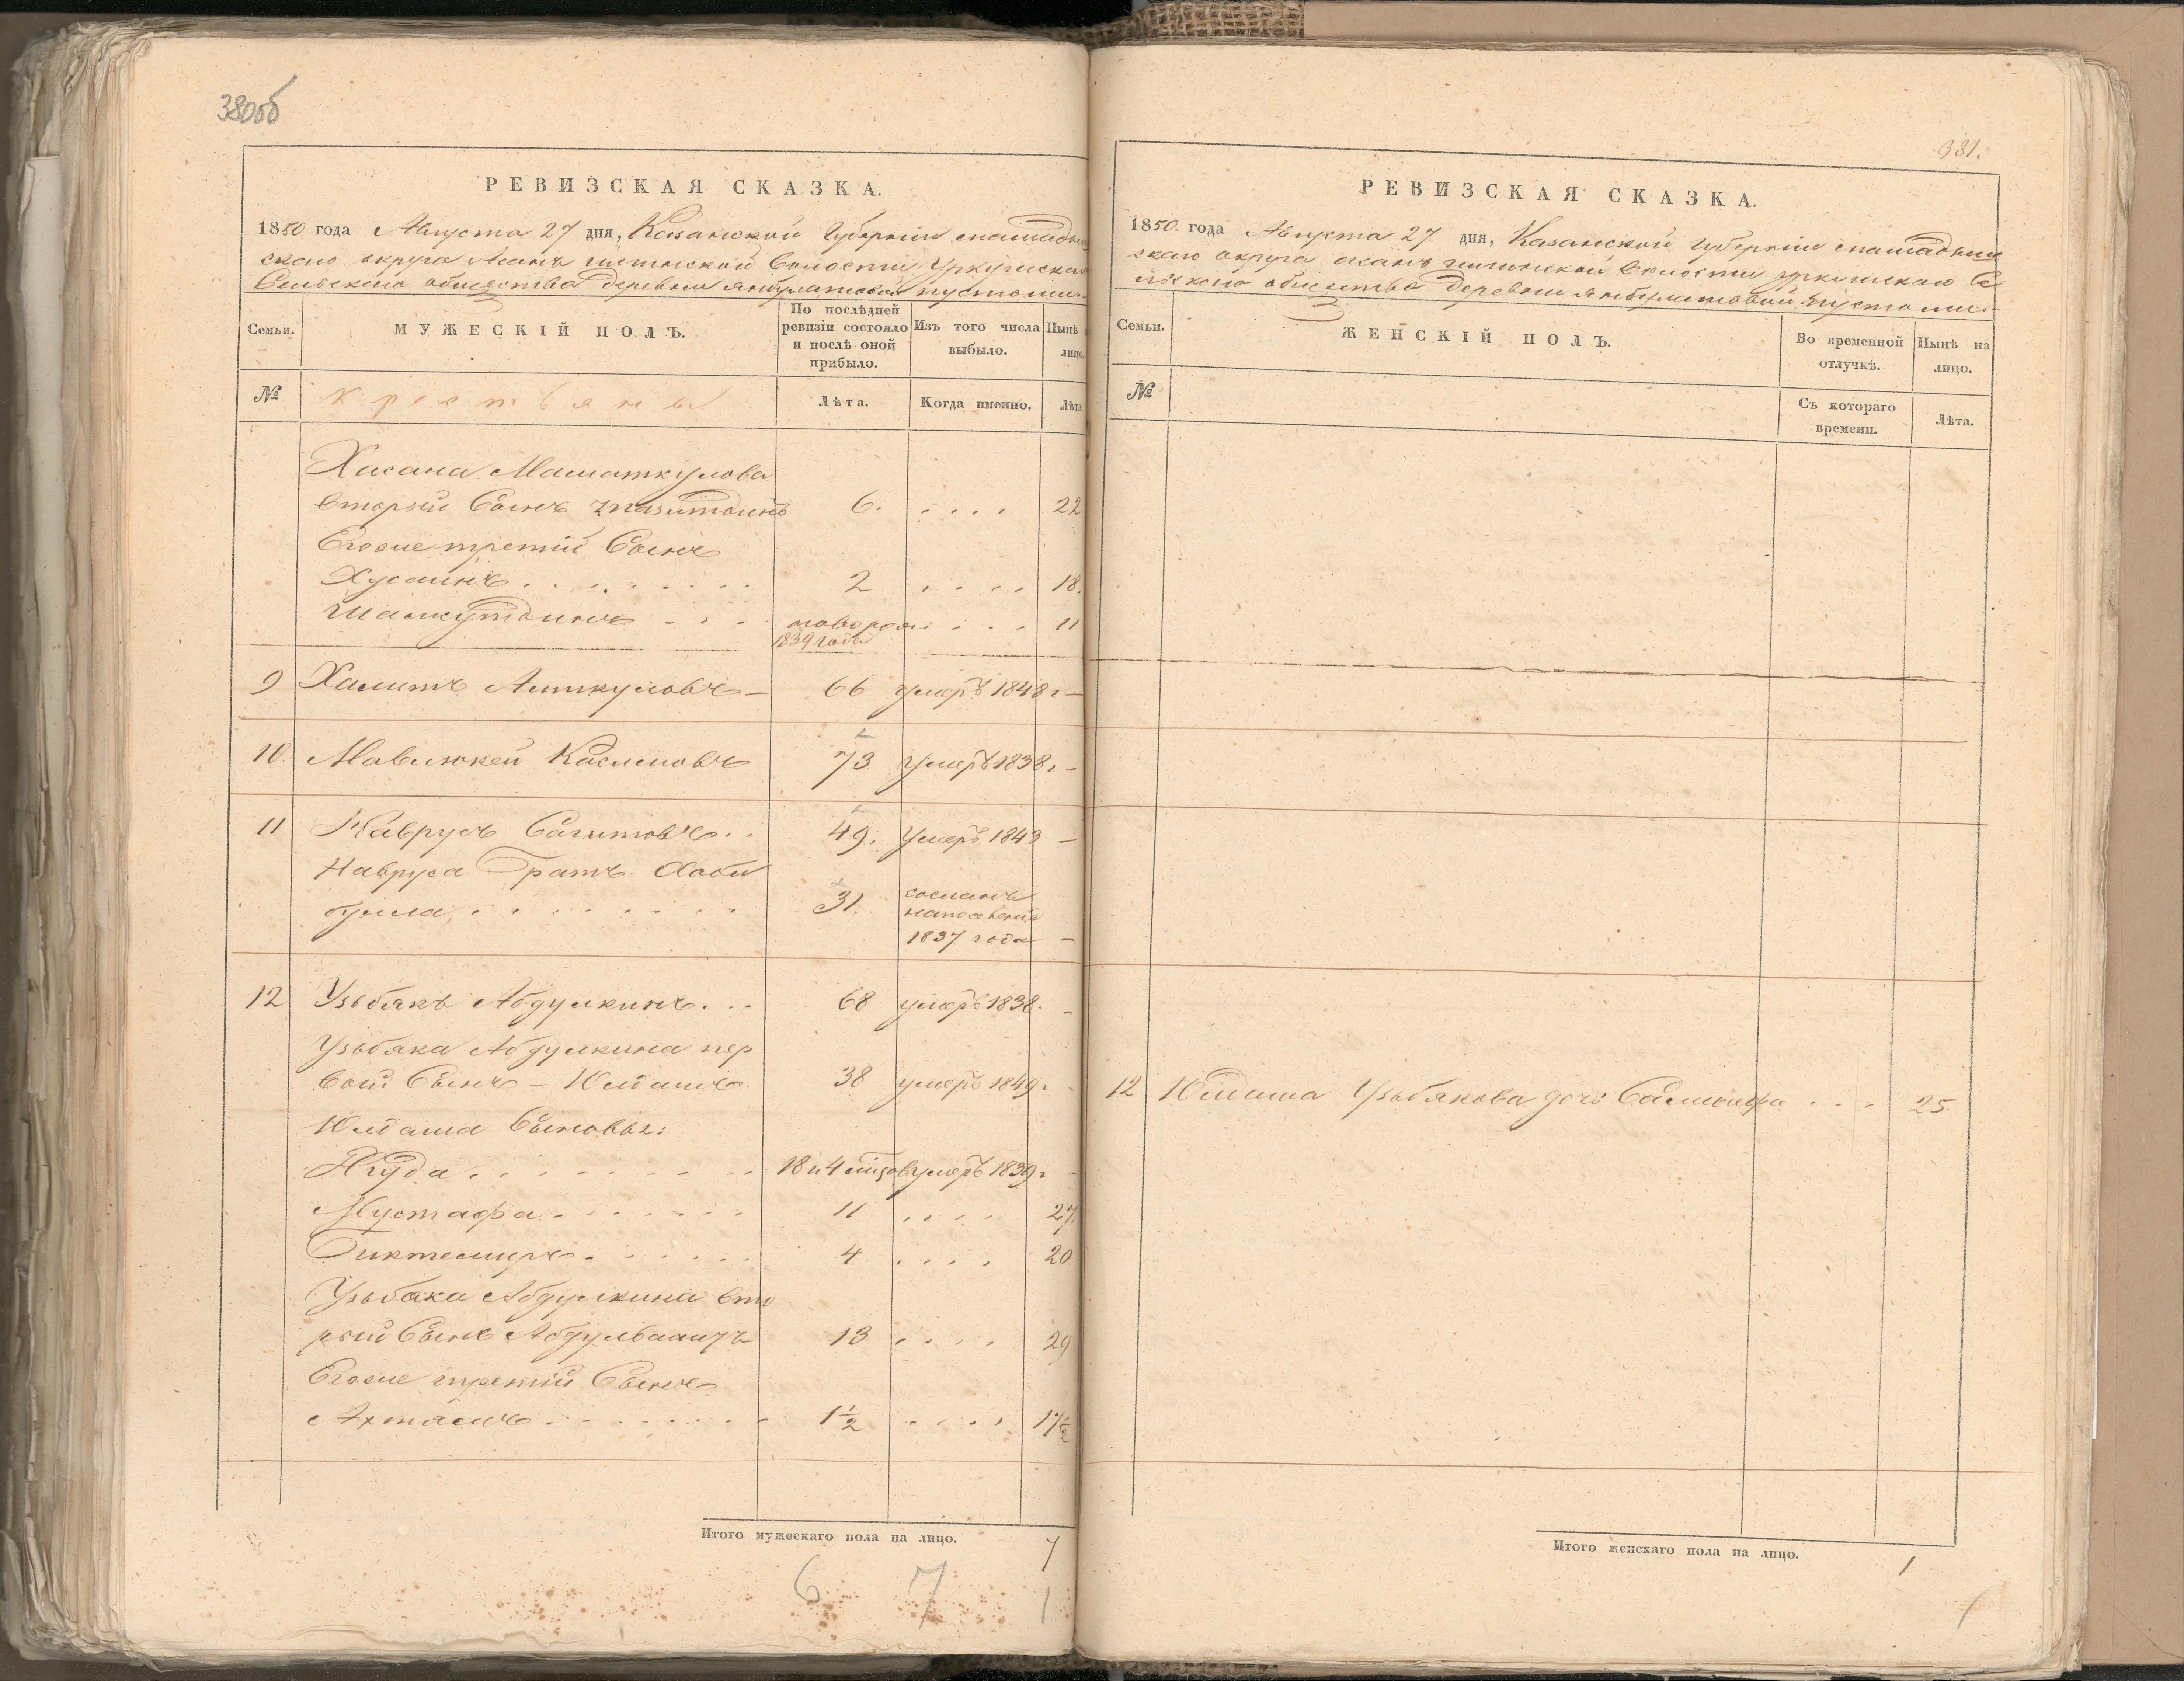 380об
РЕВИЗСКАЯ СКАЗКА.
1850 года Августа 27 дня, Казанской Губернии
скаго округа волости
Сельскаго общества деревни
Семьи.
МУЖЕСКІЙ ПОЛЪ.
По послѣдней ревизіи состояло и послѣ оной прибыло.
Изъ того числа выбыло.
Нынѣ
лицо.
№
крестьяны
Лѣта.
Когда именно.
Лѣта
Хасана Маматкулова
вторый Сынъ 6. . . . . 22
Егоже третій Сынъ
Хусаинъ . . . . . . . . 2 . . . . 18.
Шамсутдинъ - . . новорож. . . . 11
1839 года
9 Халитъ Аиткуловъ - 66 умеръ 1848 г -
10. Мавлюкей Касимовъ 73 умеръ 1838 г -
11 Наврусъ Сагитовъ . . 49. Умеръ 1849 -
Навруса братъ Хаби
булла . . . . . . . . 31. сосланъ
на поселение
1837 года -
12 Узьбякъ Абдулкинъ . . . 68 умеръ 1838. -
Узьбяка Абдулкина пер
вой Сынъ - Юлдашъ 38 умеръ 1849 г -
Юлдаша Сыновья:
. . . . . . . . 18 и 4 умеръ 1839 г -
Мустафа . . . . . . . 11 . . . . 27.
Биктемиръ . . . . . . 4 . . . . 20
Узьбяка Абдулкина вто
рый Сынъ 13 . . . . 29
Егоже третій Сынъ
Ахтямъ . . . . . . . . 1½ . . . . 17½
Итого мужескаго пола на лицо. 7
6 7 1
381.
РЕВИЗСКАЯ СКАЗКА.
1850. года Августа 27 дня, Казанской Губерніи
скаго округа волости Се
льскаго общества деревни
Семьи.
ЖЕНСКІЙ ПОЛЪ.
Во временной отлучкѣ.
Нынѣ на лицо.
№
Съ котораго времени.
Лѣта.
12 Юлдаша Узьбякова дочь . . . 25.
Итого женскаго пола на лицо. 1
1